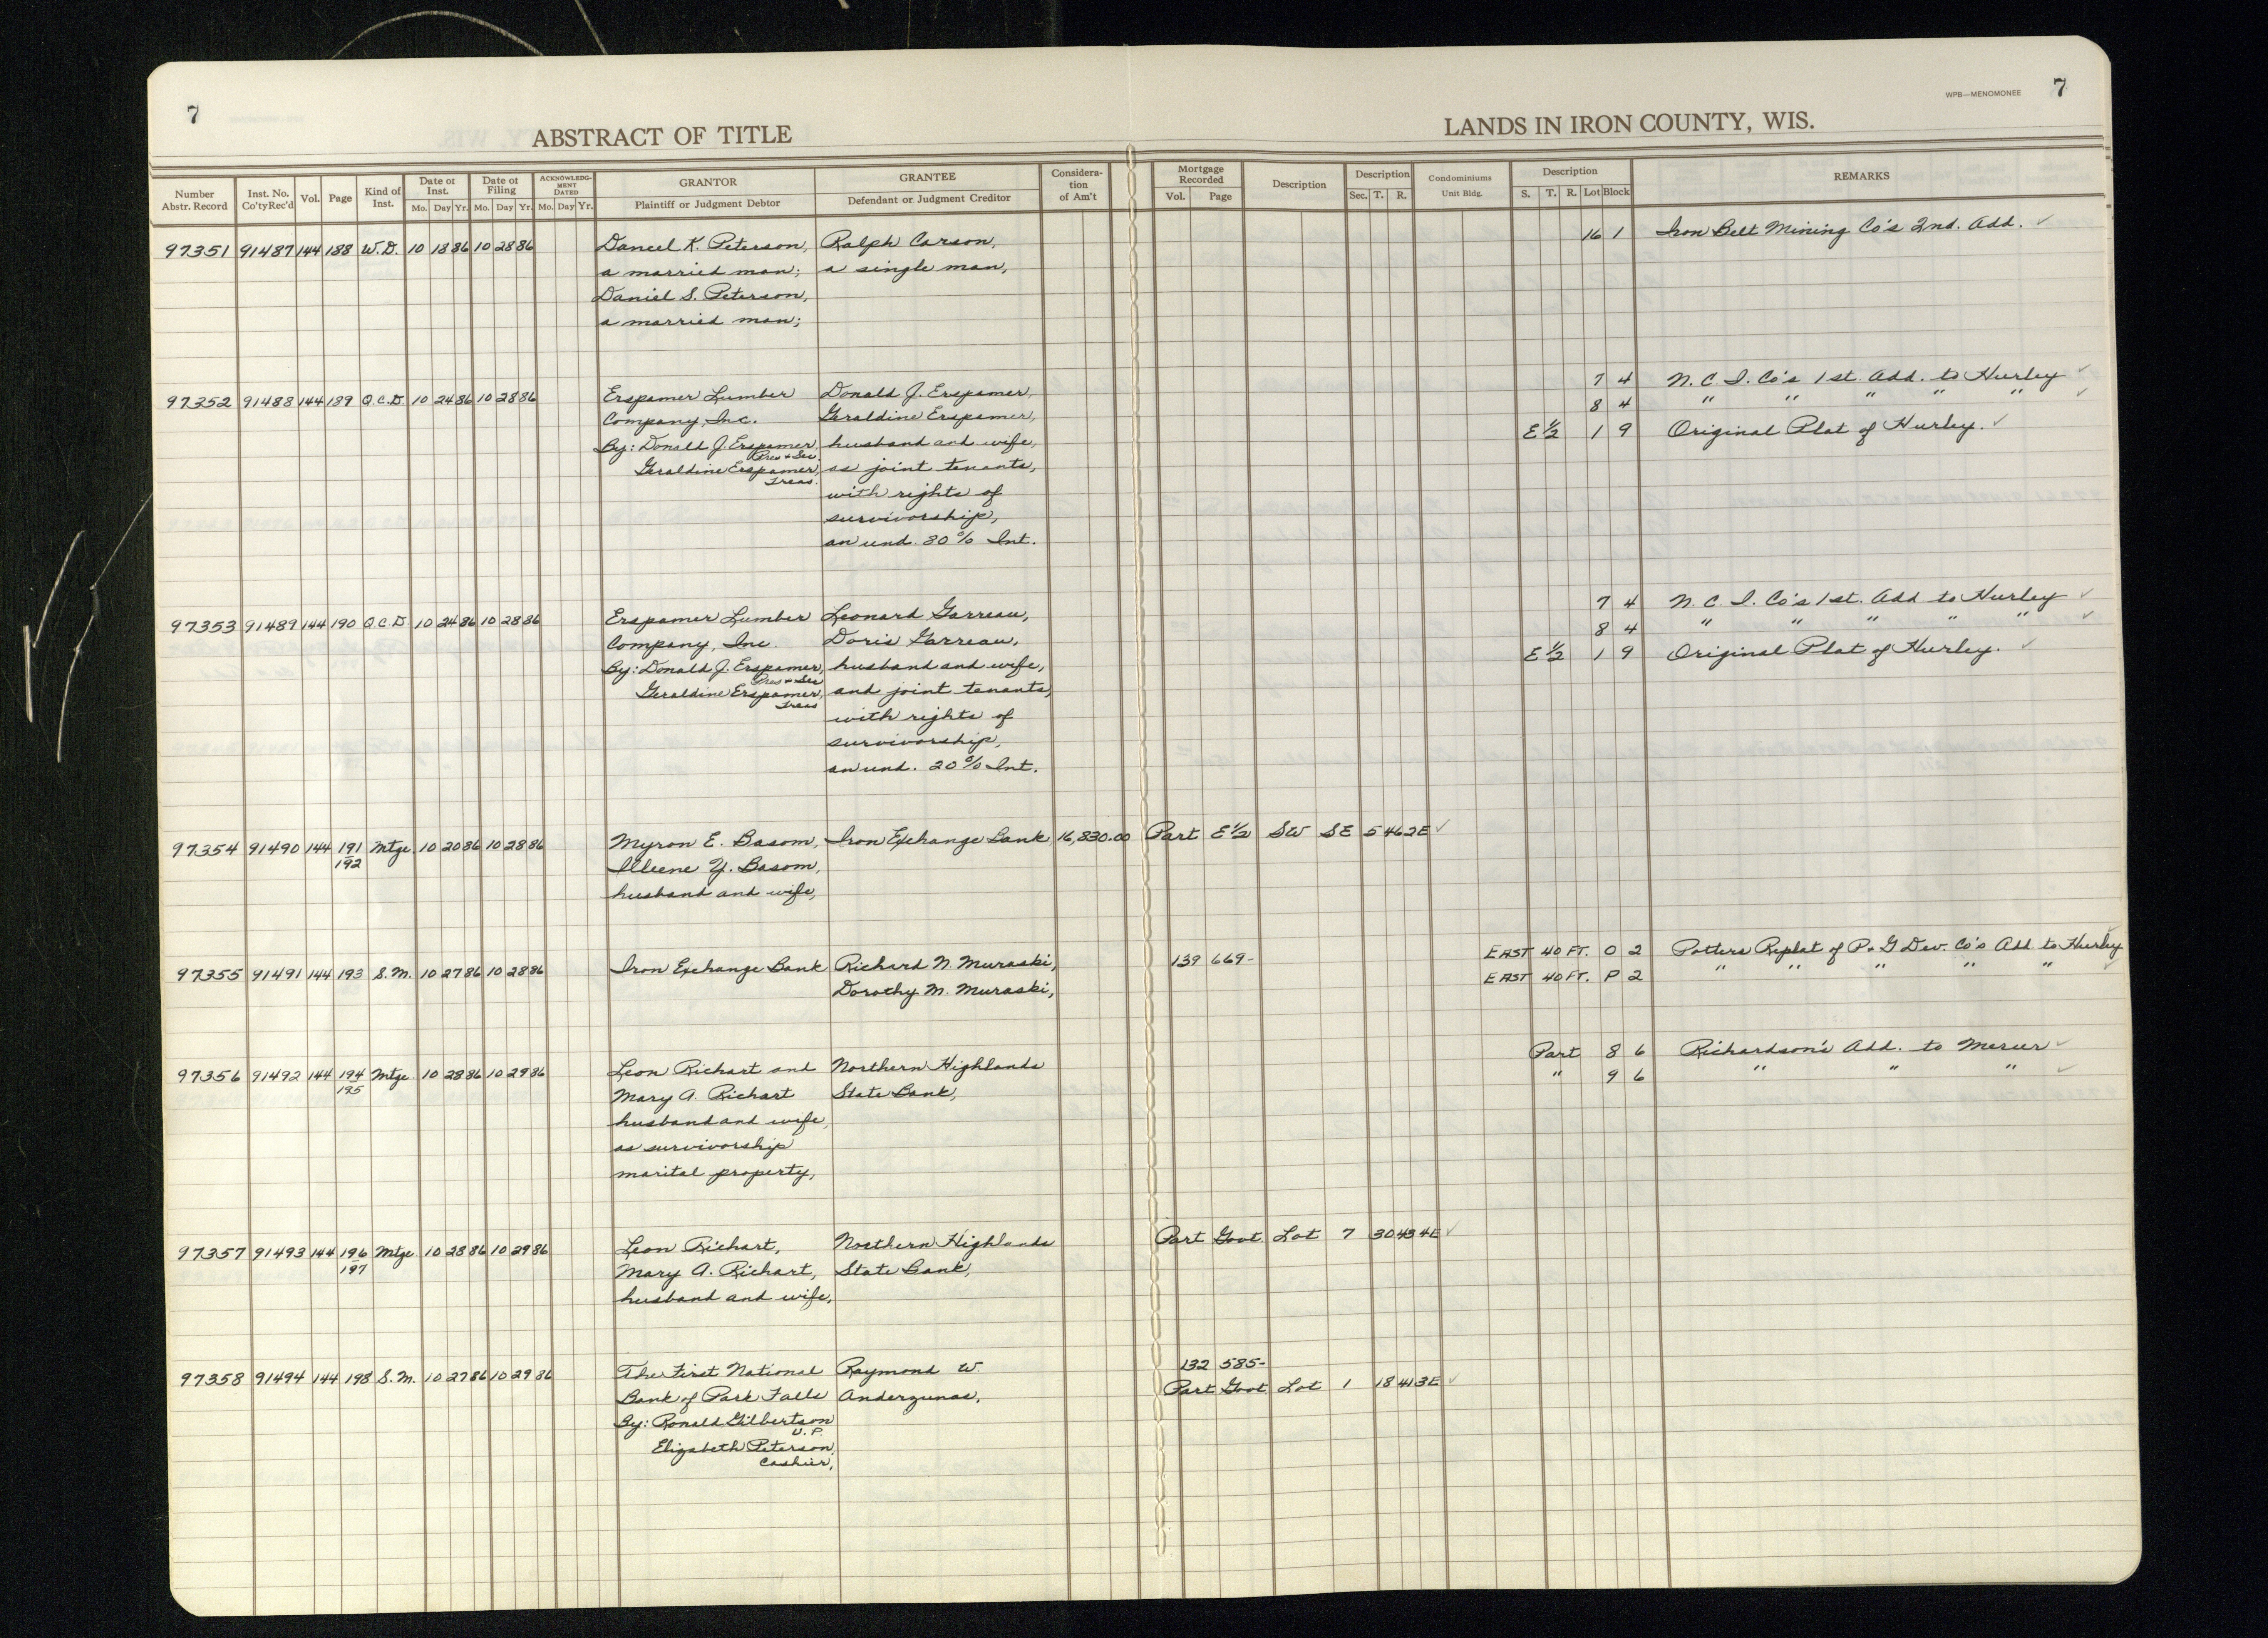 7
WPB—MENOMONEE 7
ABSTRACT OF TITLE
LANDS IN IRON COUNTY, WIS.
Number Abstr. Record | Inst. No. Co'ty Rec'd | Vol. | Page | Kind of Inst. | Date of Inst. Mo. Day Yr. | Date of Filing Mo. Day Yr. | ACKNOWLEDGMENT DATED Mo. Day Yr. | GRANTOR Plaintiff or Judgment Debtor | GRANTEE Defendant or Judgment Creditor | Consideration of Am't | Mortgage Recorded Vol. Page | Description | Description Sec. T. R. | Condominiums Unit Bldg. | Description S. T. R. Lot Block | REMARKS
97351 91487 144 188 W.D. 10 18 86 10 28 86 Daniel K. Peterson, Ralph Carson, 16 1 Iron Belt Mining Co's 2nd. Add. ✓
a married man; a single man,
Daniel S. Peterson,
a married man;
97352 91488 144 189 Q.C.D. 10 24 86 10 28 86 Erspamer Lumber Donald J. Erspamer, 7 4 N. C. I. Co's 1st. Add. to Hurley ✓
Company, Inc. Geraldine Erspamer, 8 4 " " " " " ✓
By: Donald J. Erspamer, husband and wife, E½ 1 9 Original Plat of Hurley. ✓
Pres & Sec
Geraldine Erspamer, as joint tenants,
Treas.
with rights of
survivorship,
an und. 30% Int.
97353 91489 144 190 Q.C.D. 10 24 86 10 28 86 Erspamer Lumber Leonard Garreau, 7 4 N. C. I. Co's 1st. Add to Hurley ✓
Company, Inc. Doris Garreau, 8 4 " " " " " ✓
By: Donald J. Erspamer, husband and wife, E½ 1 9 Original Plat of Hurley. ✓
Pres & Sec
Geraldine Erspamer, and joint tenants,
Treas
with rights of
survivorship,
an und. 20% Int.
97354 91490 144 191 Mtge. 10 20 86 10 28 86 Myron E. Basom, Iron Exchange Bank 16,830.00 Part E½ SW SE 5 46 2E ✓
192 Illeene Y. Basom,
husband and wife,
97355 91491 144 193 S.M. 10 27 86 10 28 86 Iron Exchange Bank Richard N. Muraski, 139 669- EAST 40 FT. O 2 Potters Replat of P. & G Dev. Co's Add to Hurley ✓
Dorothy M. Muraski, EAST 40 FT. P 2 " " " " " ✓
97356 91492 144 194 Mtge. 10 28 86 10 29 86 Leon Richart and Northern Highlands Part 8 6 Richardson's Add. to Mercer ✓
195 Mary A. Richart State Bank, " 9 6 " " " ✓
husband and wife,
as survivorship
marital property,
97357 91493 144 196 Mtge 10 28 86 10 29 86 Leon Richart, Northern Highlands Part Govt. Lot 7 30 43 4E ✓
197 Mary A. Richart, State Bank,
husband and wife,
97358 91494 144 198 S.M. 10 27 86 10 29 86 The First National Raymond W. 132 585-
Bank of Park Falls Anderzunas, Part Govt. Lot 1 18 41 3E ✓
By: Ronald Gilbertson
V.P.
Elizabeth Peterson,
Cashier,